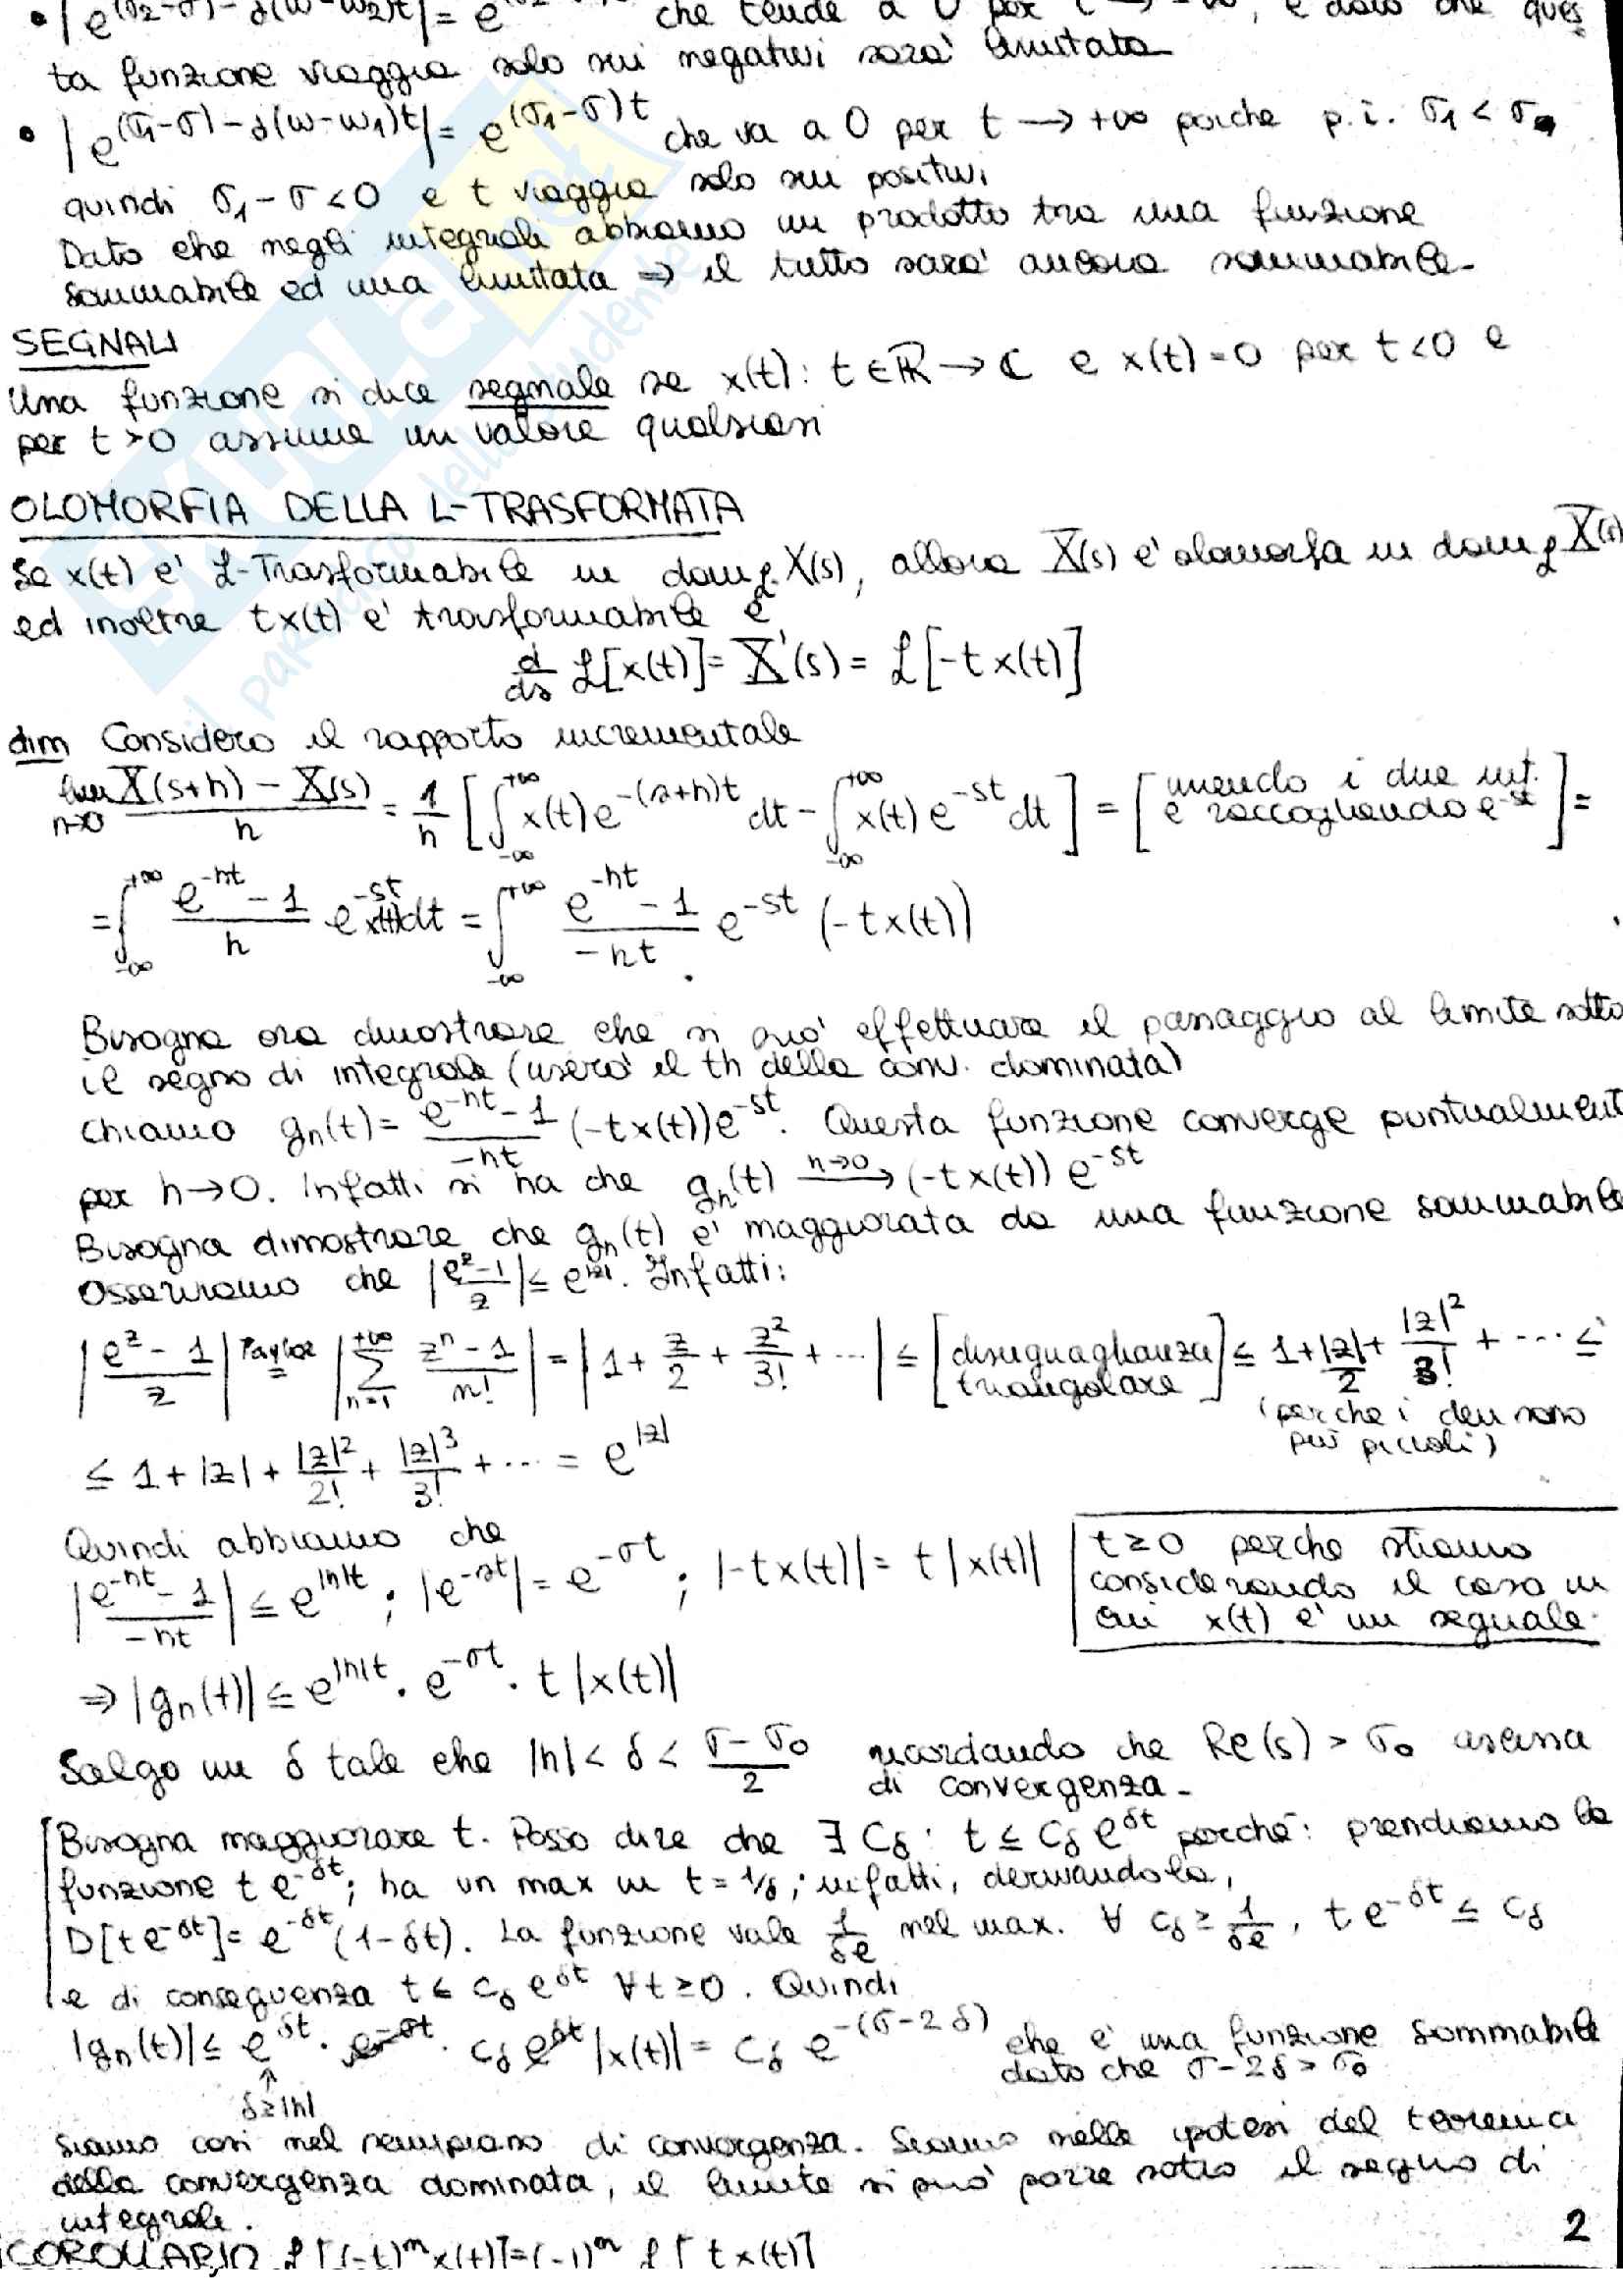 • |e^(σ2-σ)-j(ω-ω2)t| = e che tende a 0 per t → -∞, e dato che ques
ta funzione viaggia solo sui negativi sara' limitata
• |e^(σ1-σ)-j(ω-ω1)t| = e^(σ1-σ)t che va a 0 per t → +∞ poiche p.i. σ1 < σ
quindi σ1-σ<0 e t viaggia solo sui positivi
Dato che negli integrali abbiamo un prodotto tra una funzione
sommabile ed una limitata ⇒ il tutto sara' ancora sommabile.
SEGNALI
Una funzione si dice segnale se x(t): t∈ℝ → ℂ e x(t)=0 per t<0 e
per t>0 assume un valore qualsiasi
OLOMORFIA DELLA L-TRASFORMATA
Se x(t) e' ℒ-Trasformabile in domℒ X(s), allora X(s) e' olomorfa in domℒ X(s)
ed inoltre tx(t) e' trasformabile e
d/ds ℒ[x(t)] = X'(s) = ℒ[-tx(t)]
dim Considero il rapporto incrementale
lim h→0 X(s+h) - X(s) / h = 1/h [∫_-∞^+∞ x(t)e^-(s+h)t dt - ∫_-∞^+∞ x(t)e^-st dt] = [unendo i due int. e raccogliendo e^-st] =
= ∫_-∞^+∞ e^-ht - 1 / h e^-st x(t)dt = ∫_-∞^+∞ e^-ht - 1 / -ht e^-st (-tx(t))
Bisogna ora dimostrare che si puo' effettuare il passaggio al limite sotto
il segno di integrale (usero' il th della conv. dominata)
Chiamo gh(t) = e^-ht - 1 / -ht (-tx(t))e^-st. Questa funzione converge puntualment
per h→0. Infatti si ha che gh(t) h→0→ (-tx(t)) e^-st
Bisogna dimostrare che gh(t) e' maggiorata da una funzione sommabile
Osserviamo che |e^z-1 / z| ≤ e^|z|. Infatti:
|e^z - 1 / z| Taylor = |∑_n=1^+∞ z^n-1 / n!| = |1 + z/2 + z²/3! + ...| ≤ [disuguaglianza triangolare] ≤ 1 + |z|/2 + |z|²/3! + ... ≤
(perche i den sono
piu piccoli)
≤ 1 + |z| + |z|²/2! + |z|³/3! + ... = e^|z|
Quindi abbiamo che
|e^-ht - 1 / -ht| ≤ e^|h|t ; |e^-st| = e^-σt ; |-tx(t)| = t|x(t)|
t≥0 perche stiamo
considerando il caso in
cui x(t) e' un segnale.
⇒ |gh(t)| ≤ e^|h|t · e^-σt · t|x(t)|
Scelgo un δ tale che |h| < δ < σ-σ0 / 2 ricordando che Re(s) > σ0 ascissa
di convergenza.
Bisogna maggiorare t. Posso dire che ∃ Cδ : t ≤ Cδ e^δt perche: prendiamo la
funzione te^-δt; ha un max in t = 1/δ; infatti, derivandola,
D[te^-δt] = e^-δt(1-δt). La funzione vale 1/δe nel max. ∀ cδ ≥ 1/δe, te^-δt ≤ cδ
e di conseguenza t ≤ cδ e^δt ∀t≥0. Quindi
|gh(t)| ≤ e^δt · e^-σt · cδ e^δt |x(t)| = cδ e^-(σ-2δ) che e' una funzione sommabile
dato che σ-2δ > σ0
↑
δ≥|h|
Siamo cosi nel semipiano di convergenza. Siamo nelle ipotesi del teorema
della convergenza dominata, il limite si puo' porre sotto il segno di
integrale.
2
COROLLARIO ℒ[(-t)^n x(t)] = (-1)^n ℒ[tx(t)]
SKUOLA.net
il paradiso dello studente